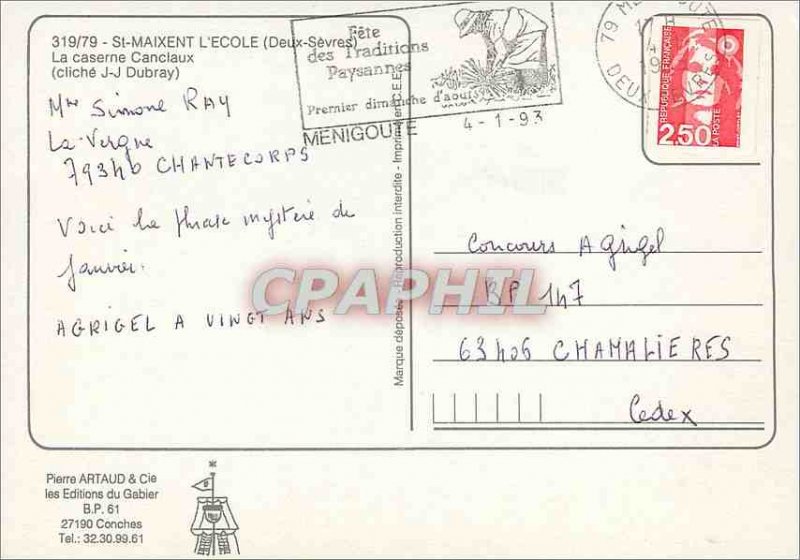 319/79 - St-MAIXENT L'ECOLE (Deux-Sèvres)
La caserne Canclaux
(cliché J-J Dubray)
Fête
des Traditions
Paysannes
Premier dimanche d'août
MENIGOUTE
4-1-93
79 MENIGOUTE
DEUX SEVRES
REPUBLIQUE FRANÇAISE
2,50
LA POSTE
Mme Simone RAY
La Vergne
79340 CHANTECORPS
Voici la phrase mystère de
Janvier.
AGRIGEL A VINGT ANS
Marque déposée - Reproduction interdite - Imprimé en C.E.E.
Concours Agrigel
BP 147
63406 CHAMALIERES
Cedex
CPAPHIL
Pierre ARTAUD & Cie
les Editions du Gabier
B.P. 61
27190 Conches
Tel.: 32.30.99.61